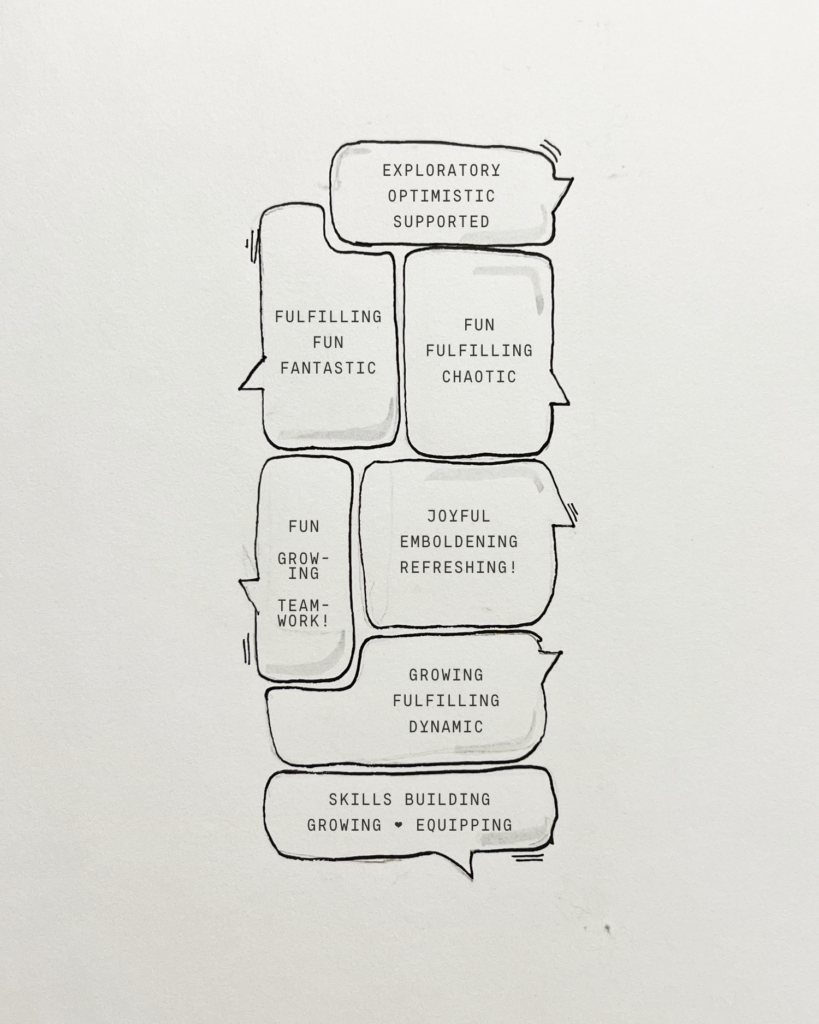 EXPLORATORY
OPTIMISTIC
SUPPORTED
FULFILLING
FUN
FANTASTIC
FUN
FULFILLING
CHAOTIC
FUN
GROW-
ING
TEAM-
WORK!
JOYFUL
EMBOLDENING
REFRESHING!
GROWING
FULFILLING
DYNAMIC
SKILLS BUILDING
GROWING ❤ EQUIPPING